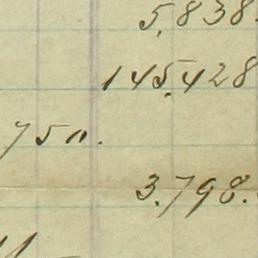 5.838.
145.428
750.
3.798.